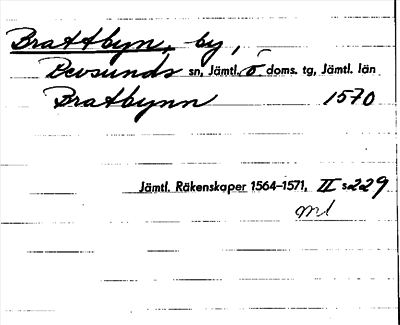 Brattbyn, by,
Revsunds sn, Jämtl. ö doms. tg, Jämtl. län
Bratbynn 1570
Jämtl. Räkenskaper 1564–1571, II s 229
ml